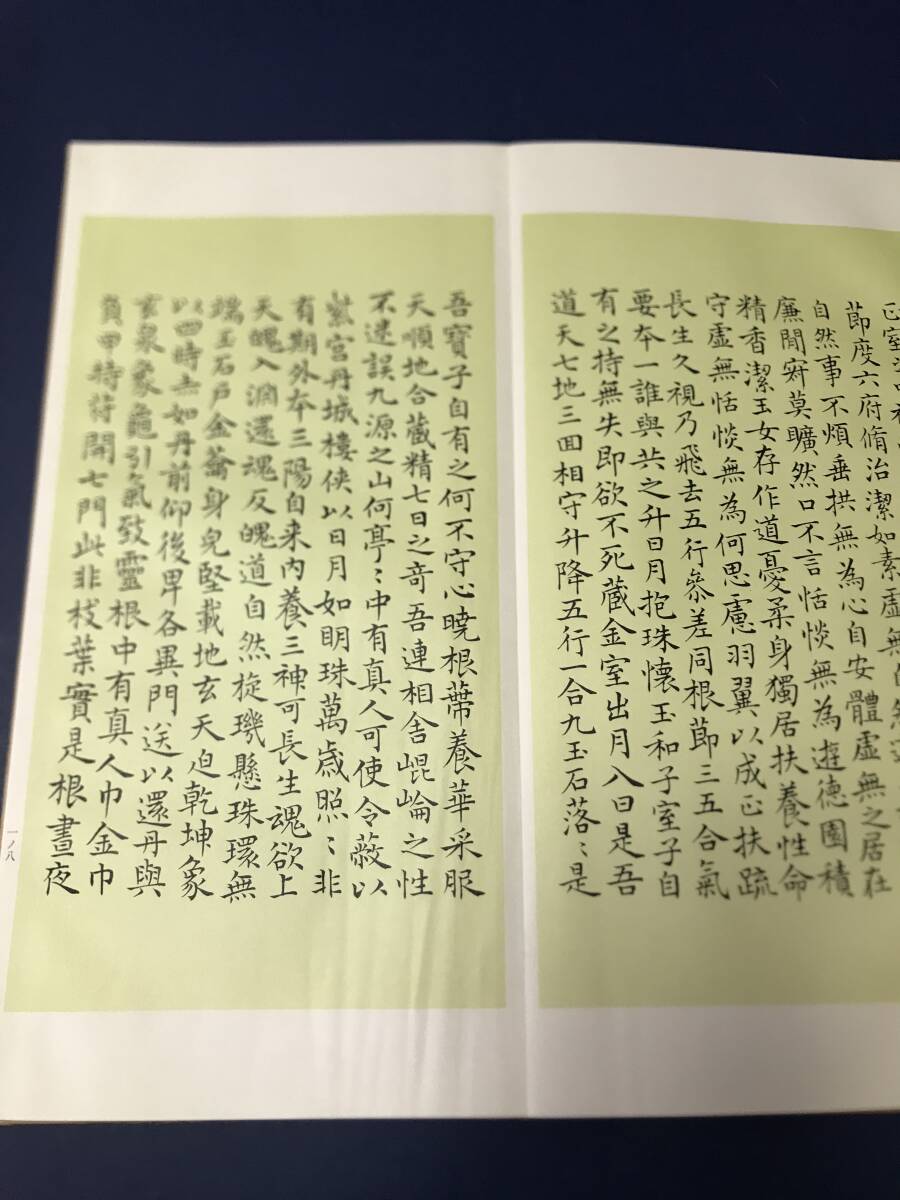 莭度六府脩治潔如素虛無
自然事不煩垂拱無為心自安體虛無之居在
廉閒寂莫曠然口不言恬惔無為遊德園積
精香潔玉女存作道憂柔身獨居扶養性命
守虛無恬惔無為何思慮羽翼以成正扶疏
長生久視乃飛去五行參差同根莭三五合氣
要夲一誰與共之升日月抱珠懷玉和子室子自
有之持無失即欲不死藏金室出月入日是吾
道天七地三回相守升降五行一合九玉石落〻是
吾寶子自有之何不守心曉根蔕養華采服
天順地合藏精七日之奇吾連相舍崐崘之性
不迷誤九源之山何亭〻中有真人可使令蔽以
紫宮丹城樓俠以日月如明珠萬歲照〻非
有期外夲三陽自来內養三神可長生魂欲上
天魄入淵還魂反魄道自然旋璣懸珠環無
端玉石戶金蘥身皃堅載地玄天迫乾坤象
以四時赤如丹前仰後卑各異門送以還丹與
玄泉象龜引氣致靈根中有真人巾金巾
負甲持符開七門此非枝葉實是根晝夜
一ノ八